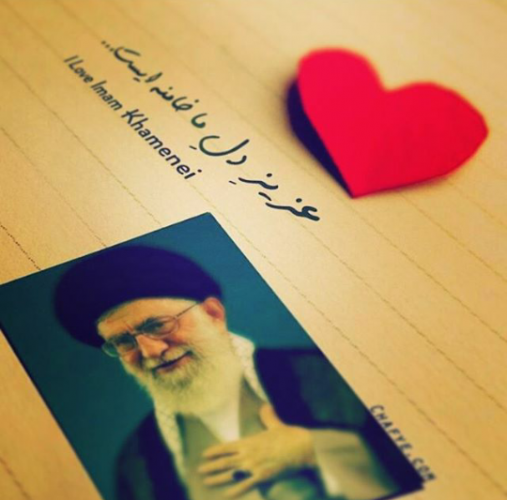 عزیزِ دلِ ما خامنه ایست...
I Love Imam Khamenei
CHAFYE.COM